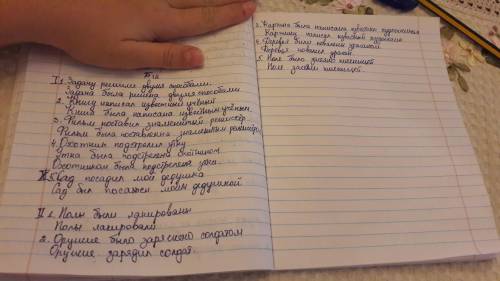 I 1. Задачу решили двумя способами.
Задача была решена двумя способами
2. Книгу написал известный учёный
Книга была написана известным учёным.
3. Фильм поставил знаменитый режиссёр.
Фильм был поставлен знаменитым режиссёром.
4. Охотник подстрелил утку
Утка была подстрелена охотником.
Охотником была подстрелена утка.
5. Сад посадил мой дедушка
Сад был посажен моим дедушкой
II 1. Полы были лакированы
Полы лакировали
2. Оружие было заряжено солдатом
Оружие зарядил солдат.
3. Картина была написана известным художником
Картину написал известный художник
4. Деревья были повалены ураганом
Деревья повалил ураган.
5. Поле было засеяно пшеницей
Поле засеяли пшеницей.